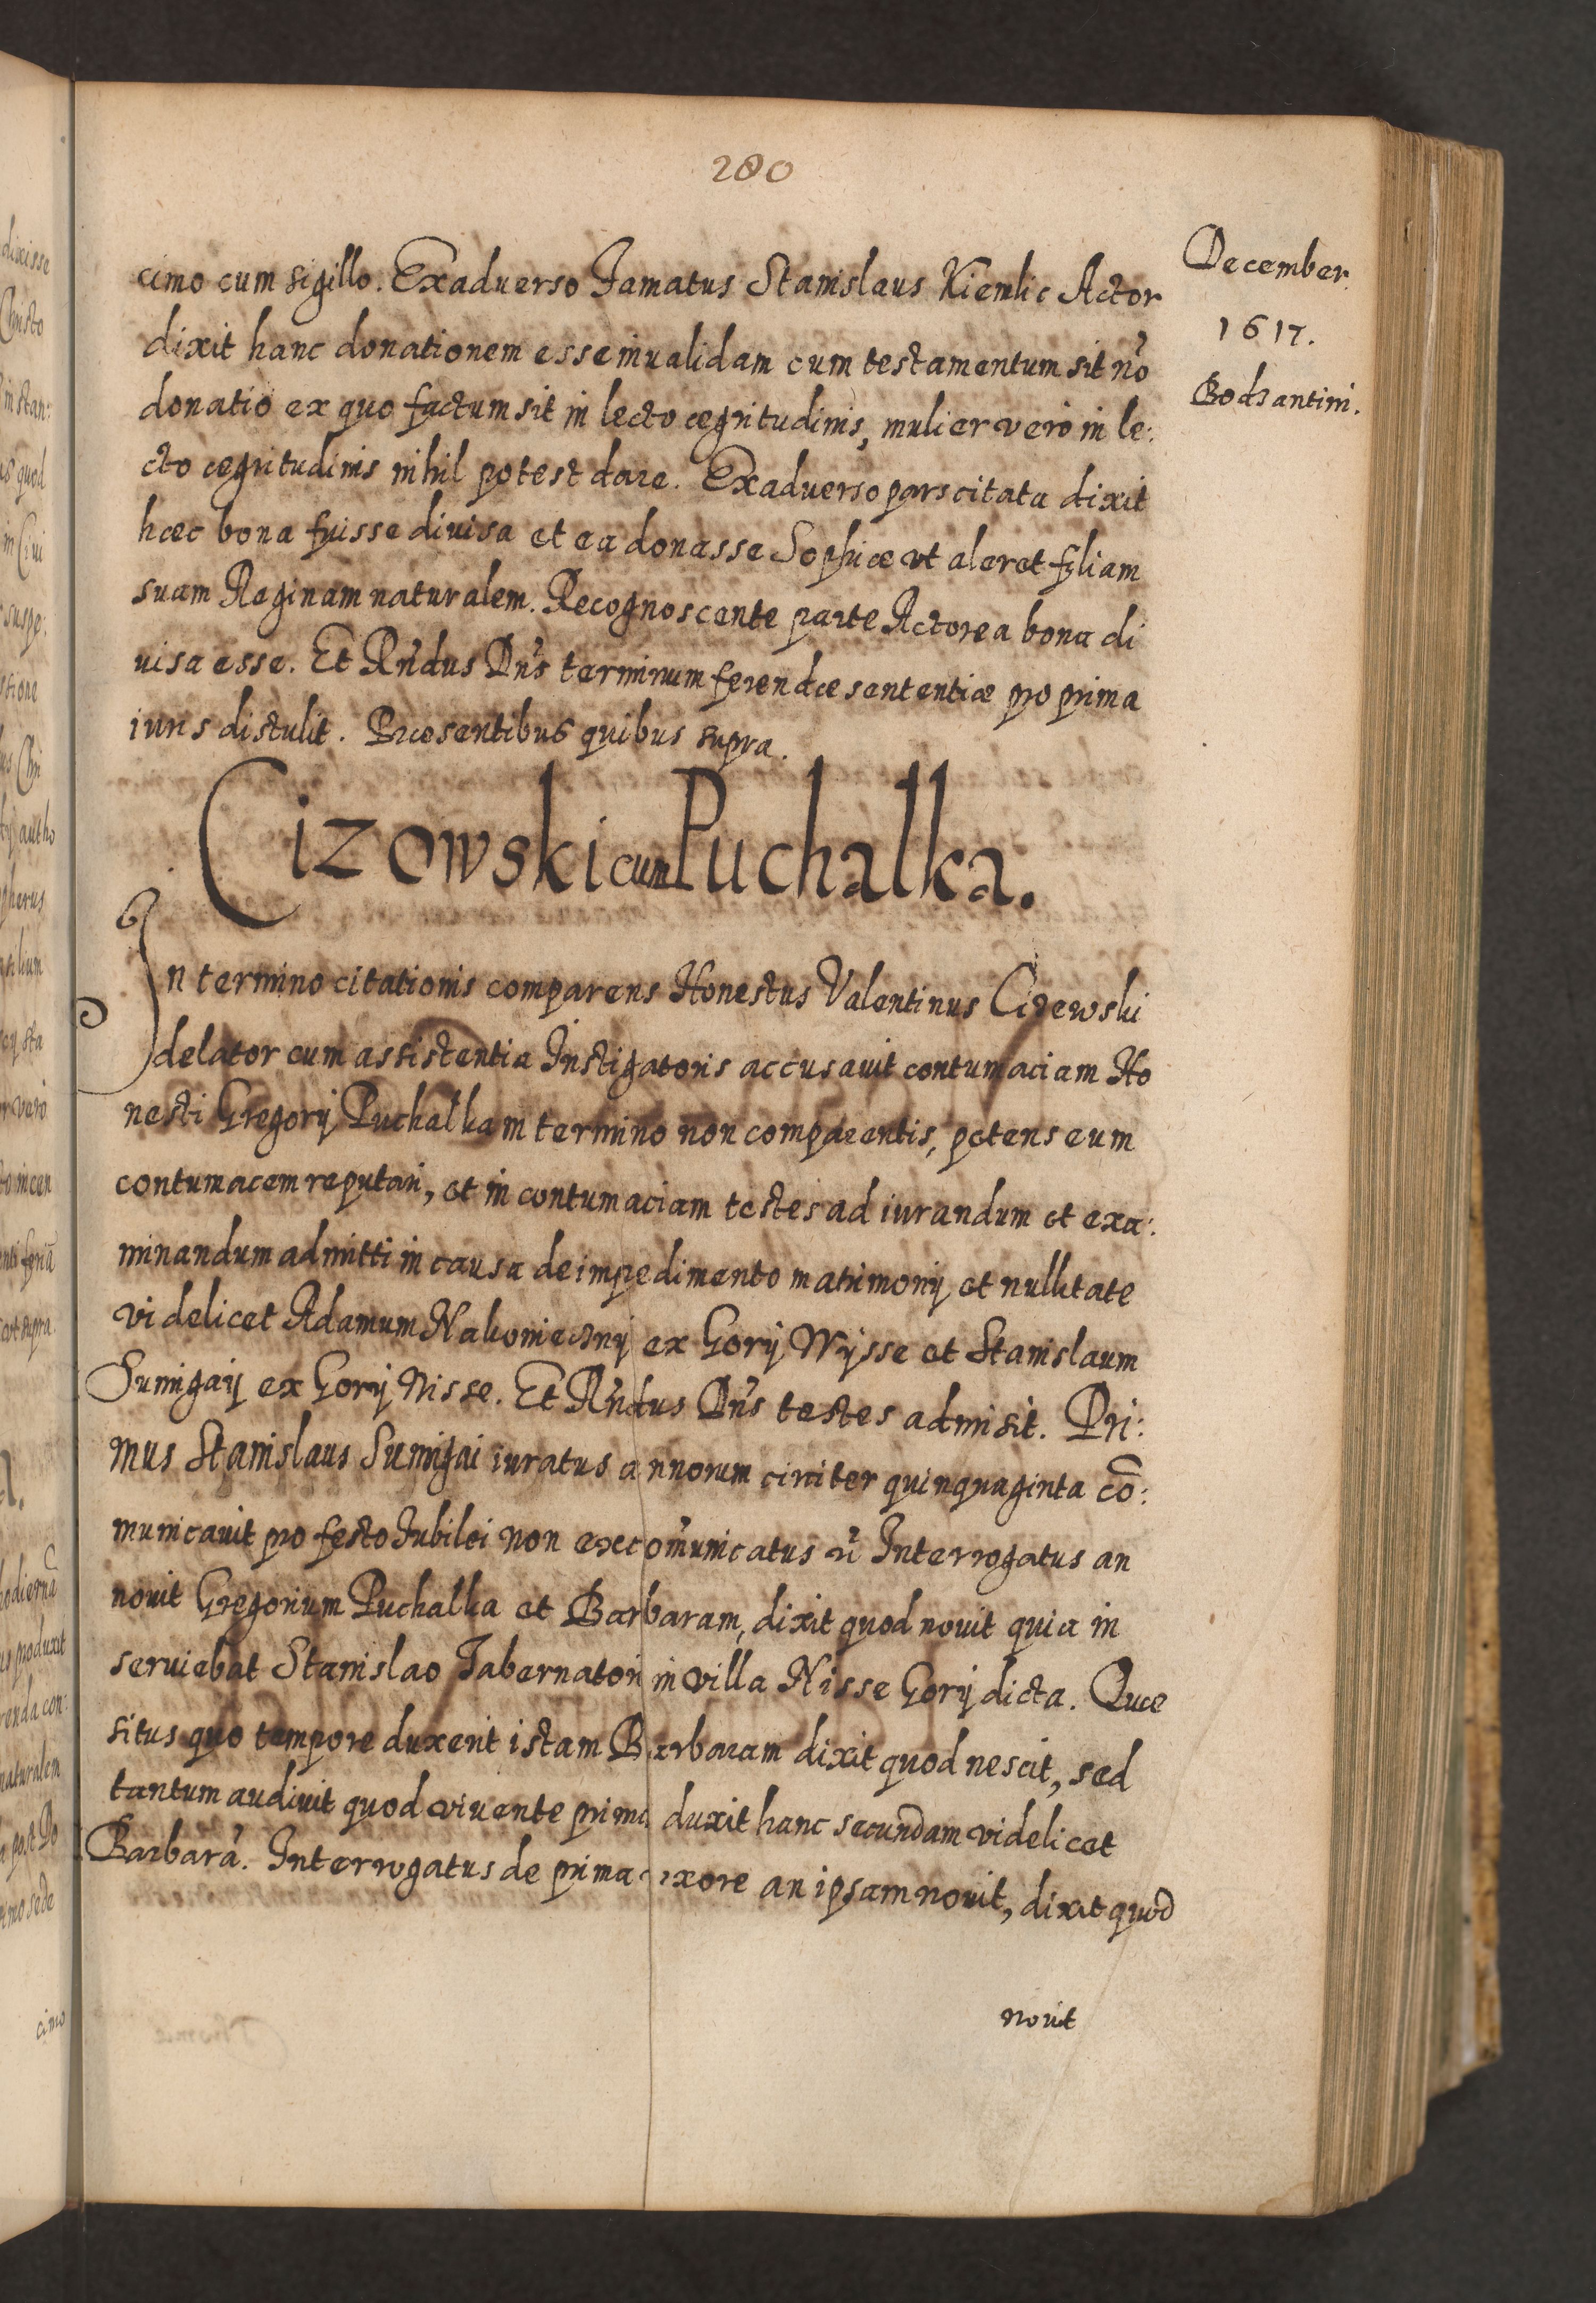 280
December.
1617.
Bodzantini.
cimo cum sigillo. Exaduerso Famatus Stanislaus Kiemlic Actor
dixit hanc donationem esse inualidam cum testamentum sit nõ
donatio ex quo factum sit in lecto œgritudinis, mulier vero in le:
cto œgritudinis nihil potest dare. Exaduerso pars citata dixit
hœc bona fuisse diuisa et ea donasse Sophiœ vt aleret filiam
suam Reginam naturalem. Recognoscente parte Actorea bona di
uisa esse. Et Rñdus Dñs terminum ferendœ sententiœ pro prima
iuris distulit. Prœsentibus quibus supra.
Cizowski cum Puchalka.
In termino citationis comparens Honestus Valentinus Cizewski
delator cum assistentia Instigatoris accusauit contumaciam Ho
nesti Gregorij Puchalka in termino non comparentis, petens eum
contumacem reputari, et in contumaciam testes ad iurandum et exa:
minandum admitti in causa de impedimento matrimonij et nullitate
videlicet Adamum Nakoniecznij ex Gorij Wysse et Stanislaum
Sumigaij ex Gorij Nisse. Et Rñdus Dñs testes admisit. Pri:
mus Stanislaus Sumigai iuratus annorum circiter quinquaginta cõ:
municauit pro festo Iubilei non excom̃unicatus ñ Interrogatus an
nouit Gregorium Puchalka et Barbaram, dixit quod nouit quia in
seruiebat Stanislao Tabernatori in villa Nisse Gorij dicta. Quœ
situs quo tempore duxerit istam Barbaram dixit quod nescit, sed
tantum audiuit quod viuente prima duxit hanc secundam videlicet
Barbarã. Interrogatus de prima uxore an ipsam nouit, dixit quod
nouit